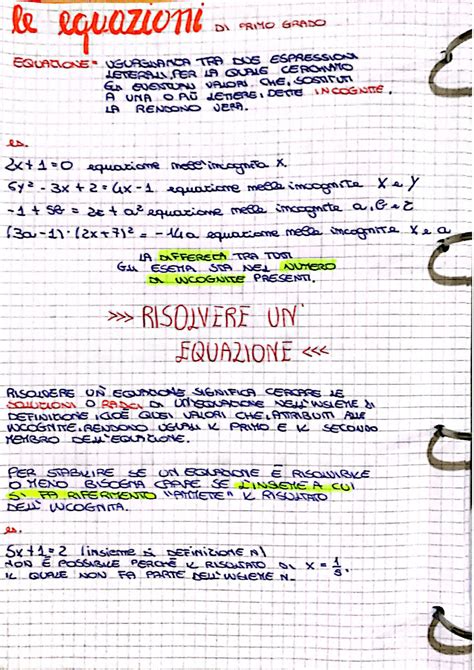 le equazioni DI PRIMO GRADO
EQUAZIONE = UGUAGLIANZA TRA DUE ESPRESSIONI
LETTERALI, PER LA QUALE CERCHIAMO
GLI EVENTUALI VALORI CHE, SOSTITUITI
A UNA O PIÙ LETTERE, DETTE INCOGNITE,
LA RENDONO VERA.
es.
2x+1=0 equazione nell'incognita x.
5y² - 3x + 2 = 4x - 1 equazione nelle incognite x e y
-1 + 5b = 2z + a² equazione nelle incognite a, b e z
(3a-1)·(2x+7)² = -14a equazione nelle incognite x e a
LA DIFFERENZA TRA TUTTI
GLI ESEMPI STA NEL NUMERO
DI INCOGNITE PRESENTI.
>>> RISOLVERE UN'
EQUAZIONE <<<
RISOLVERE UN'EQUAZIONE SIGNIFICA CERCARE LE
SOLUZIONI O RADICI DI UN'EQUAZIONE NELL'INSIEME DI
DEFINIZIONE, CIOÈ QUEI VALORI CHE, ATTRIBUITI ALLE
INCOGNITE, RENDONO UGUALI IL PRIMO E IL SECONDO
MEMBRO DELL'EQUAZIONE.
PER STABILIRE SE UN'EQUAZIONE È RISOLVIBILE
O MENO BISOGNA CAPIRE SE L'INSIEME A CUI
SI FA RIFERIMENTO "AMMETTE" IL RISULTATO
DELL'INCOGNITA.
es.
5x+1=2 (insieme di DEFINIZIONE N)
NON È POSSIBILE PERCHÉ IL RISULTATO DI x = 1/5.
IL QUALE NON FA PARTE DELL'INSIEME N.